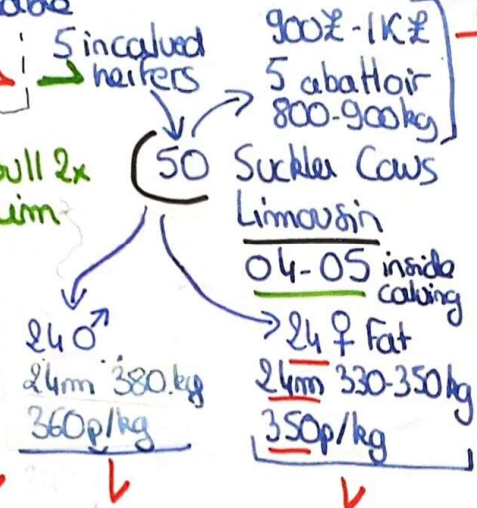 5 incalved
heifers
900£-1K£
5 abattoir
800-900kg
bull 2x
Lim
50 Suckler Cows
Limousin
04-05 inside
calving
24 ♂
24m 380.kg
360p/kg
24 ♀ Fat
24m 330-350kg
350p/kg